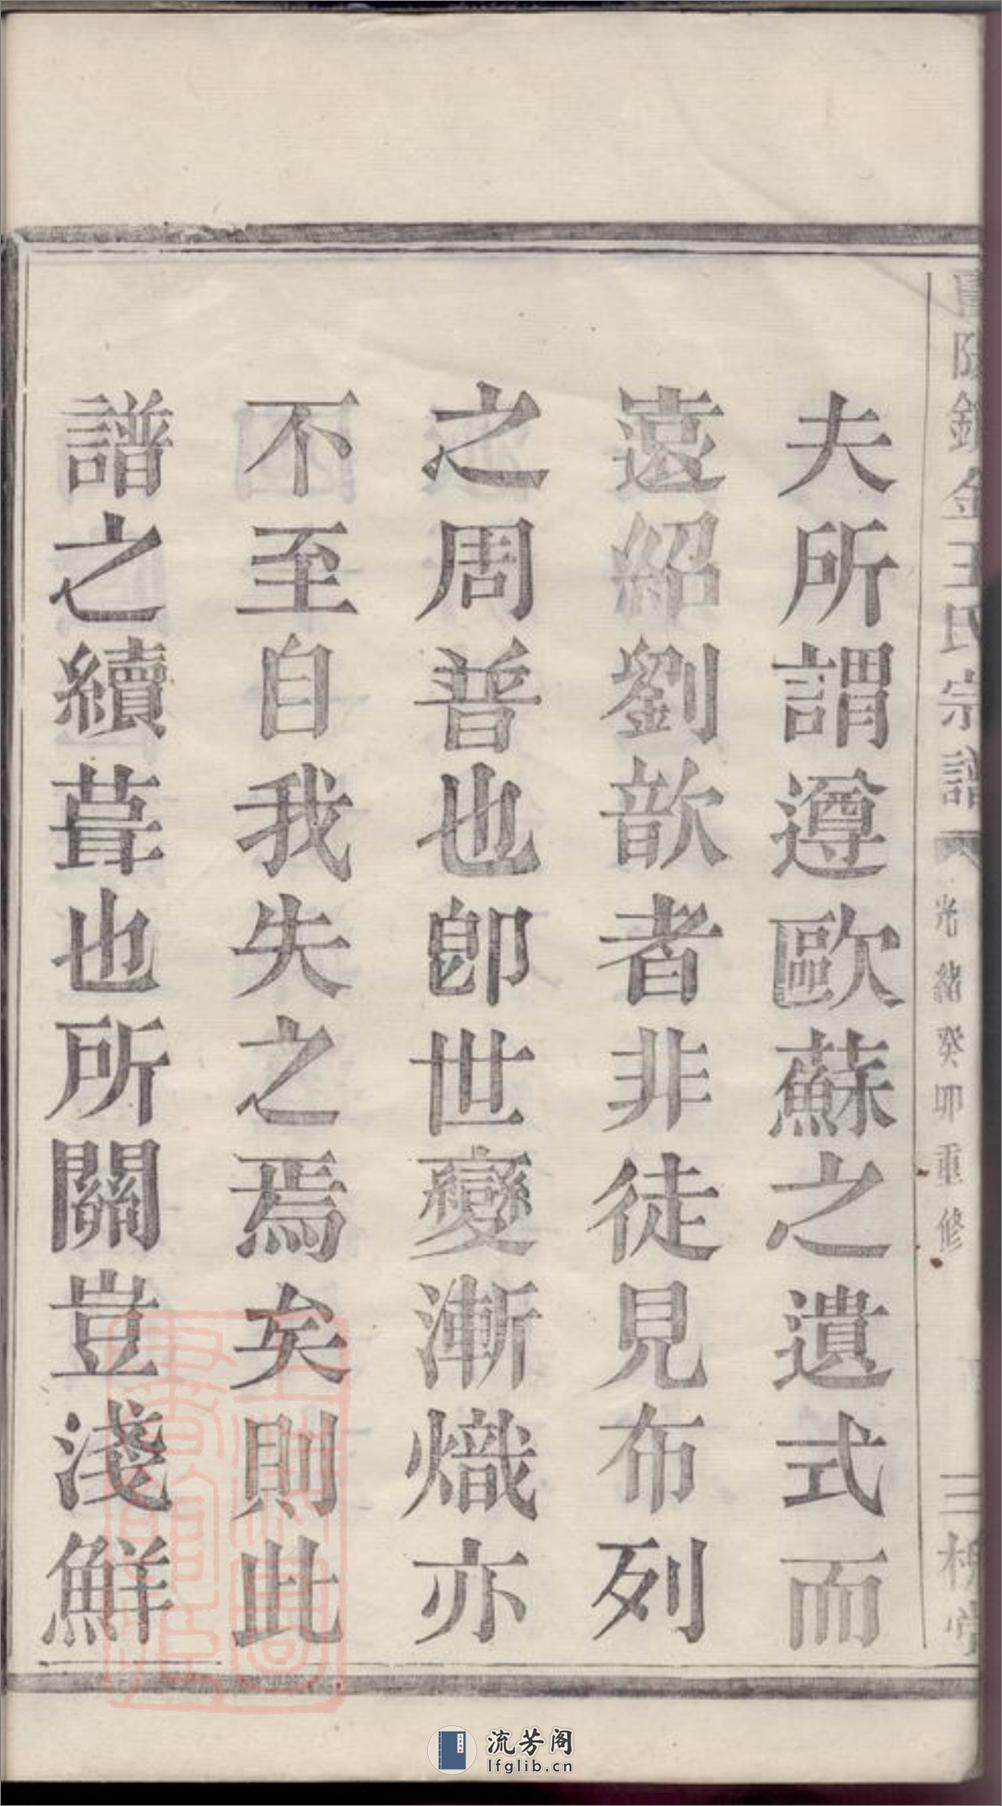 夫所謂遵歐蘇之遺式而
遠紹劉歆者非徒見布列
之周普也卽世變漸熾亦
不至自我失之焉矣則此
譜之續葺也所關豈淺鮮
金王氏宗譜
光緒癸卯重修
三槐堂
流芳阁
lfglib.cn